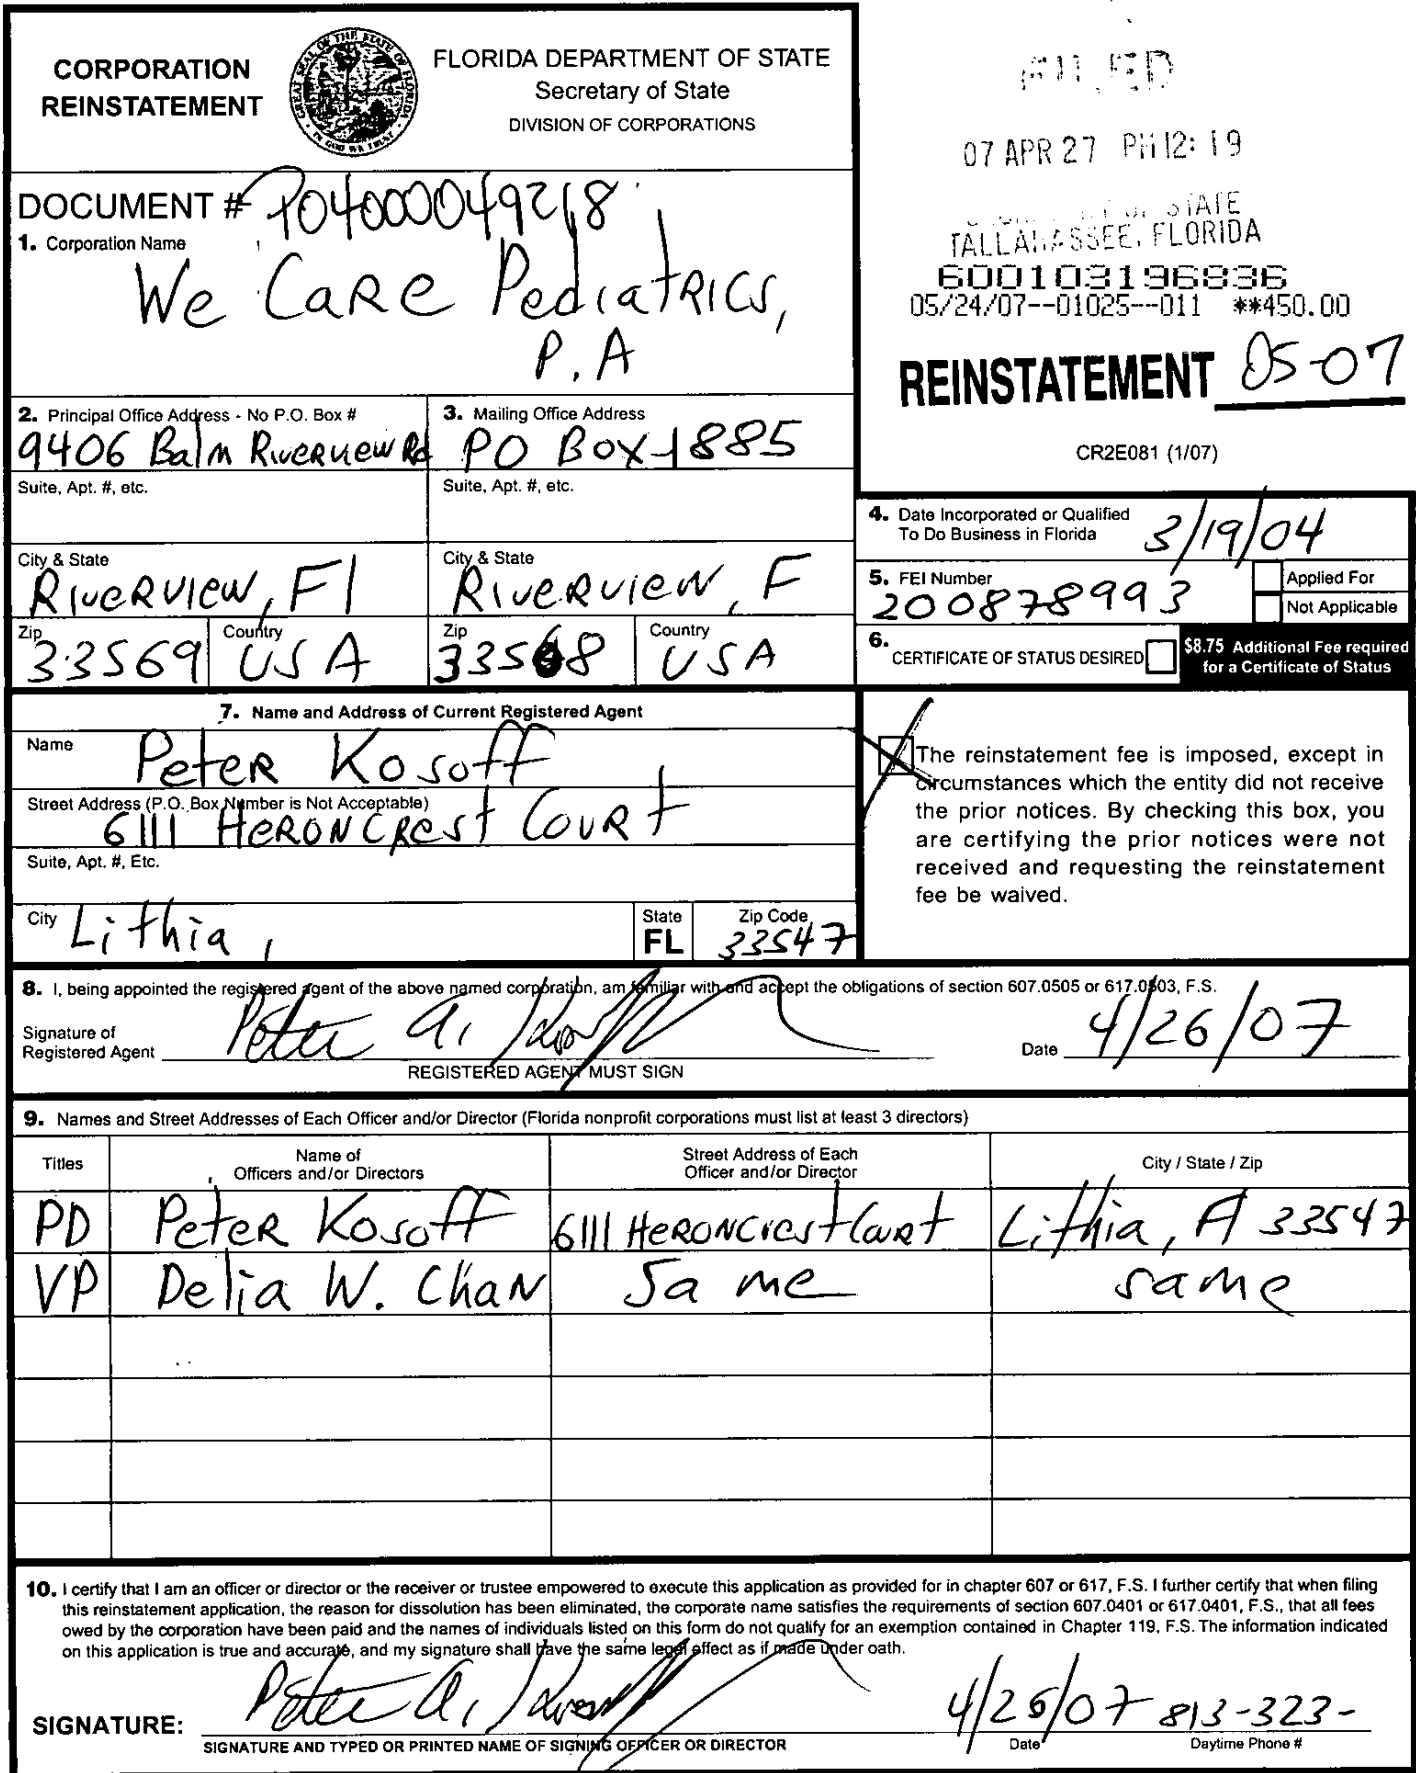 CORPORATION
REINSTATEMENT
FLORIDA DEPARTMENT OF STATE
Secretary of State
DIVISION OF CORPORATIONS
FILED
07 APR 27 PM 12:19
STATE
TALLAHASSEE, FLORIDA
600103196836
05/24/07--01025--011 **450.00
REINSTATEMENT 05-07
CR2E081 (1/07)
DOCUMENT # P04000049218
1. Corporation Name
We Care Pediatrics,
P.A
2. Principal Office Address - No P.O. Box #
9406 Balm Riverview Rd
Suite, Apt. #, etc.
City & State
Riverview, Fl
Zip 33569 Country USA
3. Mailing Office Address
PO Box 1885
Suite, Apt. #, etc.
City & State
Riverview, F
Zip 33568 Country USA
4. Date Incorporated or Qualified
To Do Business in Florida 3/19/04
5. FEI Number
200878993
Applied For
Not Applicable
6. CERTIFICATE OF STATUS DESIRED
$8.75 Additional Fee required
for a Certificate of Status
7. Name and Address of Current Registered Agent
Name Peter Kosoff
Street Address (P.O. Box Number is Not Acceptable)
6111 Heroncrest Court
Suite, Apt. #, Etc.
City Lithia, State FL Zip Code 33547
The reinstatement fee is imposed, except in
circumstances which the entity did not receive
the prior notices. By checking this box, you
are certifying the prior notices were not
received and requesting the reinstatement
fee be waived.
8. I, being appointed the registered agent of the above named corporation, am familiar with and accept the obligations of section 607.0505 or 617.0503, F.S.
Signature of
Registered Agent Peter A. Kosoff Date 4/26/07
REGISTERED AGENT MUST SIGN
9. Names and Street Addresses of Each Officer and/or Director (Florida nonprofit corporations must list at least 3 directors)
Titles
Name of
Officers and/or Directors
Street Address of Each
Officer and/or Director
City / State / Zip
PD Peter Kosoff 6111 Heroncrest Court Lithia, Fl 33547
VP Delia W. Chan Same same
10. I certify that I am an officer or director or the receiver or trustee empowered to execute this application as provided for in chapter 607 or 617, F.S. I further certify that when filing
this reinstatement application, the reason for dissolution has been eliminated, the corporate name satisfies the requirements of section 607.0401 or 617.0401, F.S., that all fees
owed by the corporation have been paid and the names of individuals listed on this form do not qualify for an exemption contained in Chapter 119, F.S. The information indicated
on this application is true and accurate, and my signature shall have the same legal effect as if made under oath.
SIGNATURE: Peter A. Kosoff 4/26/07 813-323-
SIGNATURE AND TYPED OR PRINTED NAME OF SIGNING OFFICER OR DIRECTOR Date Daytime Phone #